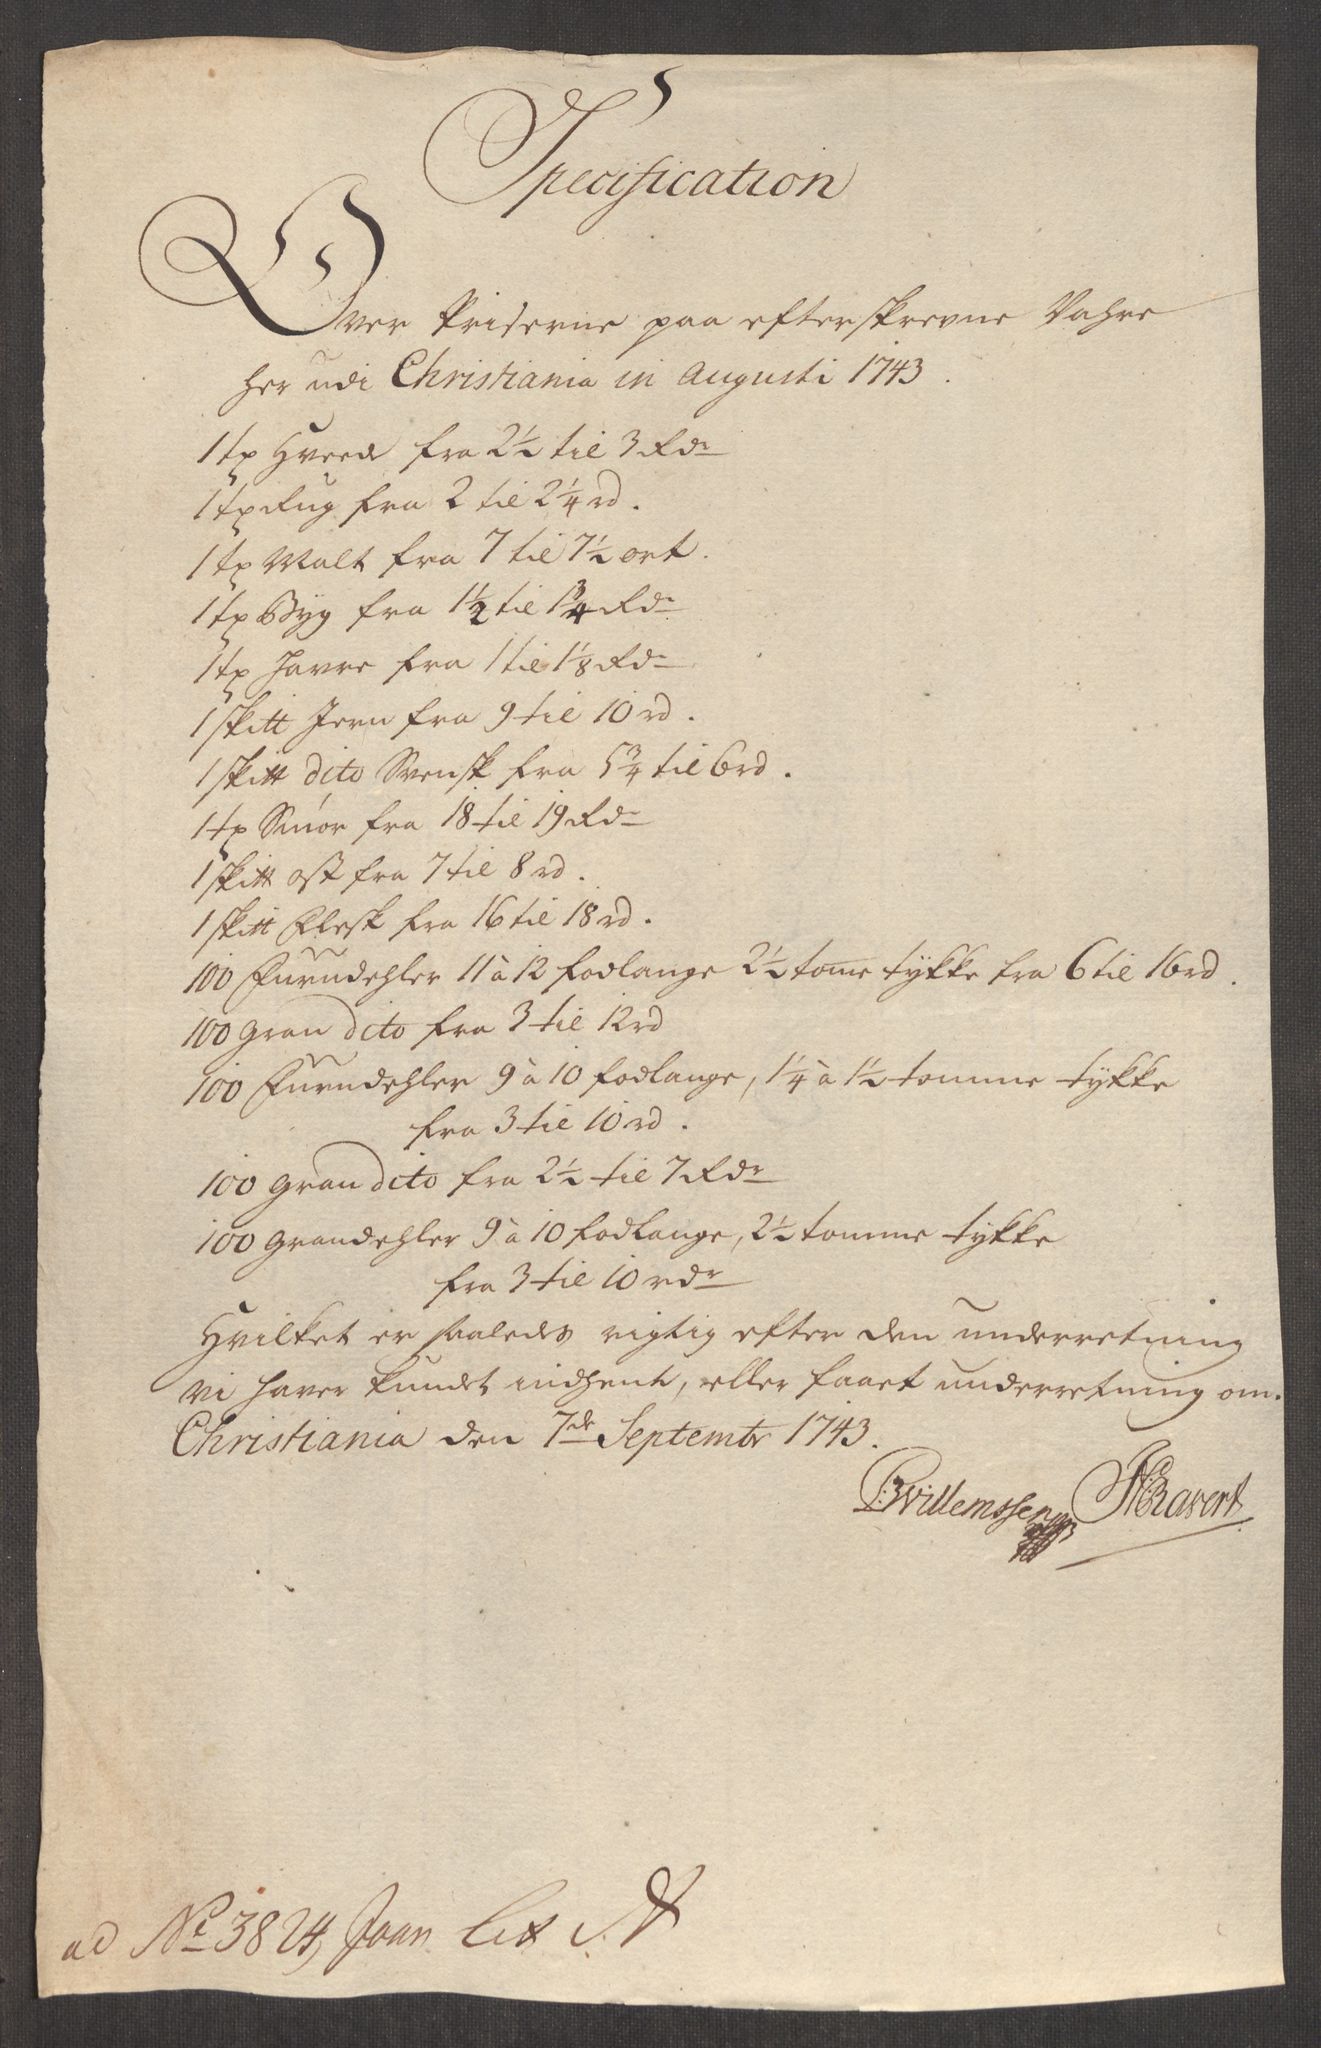 Specification
Over Priserne paa efterskrevne Vahre
her udi Christiania in Augusti 1743.
1 tp Hvede fra 2½ til 3 Rdr
1 tp Rug fra 2 til 2¼ rd.
1 tp Malt fra 7 til 7½ ort.
1 tp Byg fra 1½ til 1¾ Rdr
1 tp Havre fra 1 til 1⅛ Rdr
1 skitt Jern fra 9 til 10 rd.
1 skitt dito Svensk fra 5¾ til 6 rd.
1 tp Smør fra 18 til 19 Rdr
1 skitt ost fra 7 til 8 rd.
1 skitt Flesk fra 16 til 18 rd.
100 Furudehler 11 à 12 fodlange 2½ tome tykke fra 6 til 16 rd.
100 gran dito fra 3 til 12 rd
100 Furudehler 9 à 10 fodlange, 1¼ à 1½ tomme tykke
fra 3 til 10 rd.
100 gran dito fra 2½ til 7 Rdr
100 grandehler 9 à 10 fodlange, 2½ tomme tykke
fra 3 til 10 rdr
Hvilket er saaledes rigtig efter den underretning
vi haver kundet indhente, eller faaet underretning om.
Christiania den 7de Septembr 1743.
Willemssen Ravert
ad No 3824, Lit A